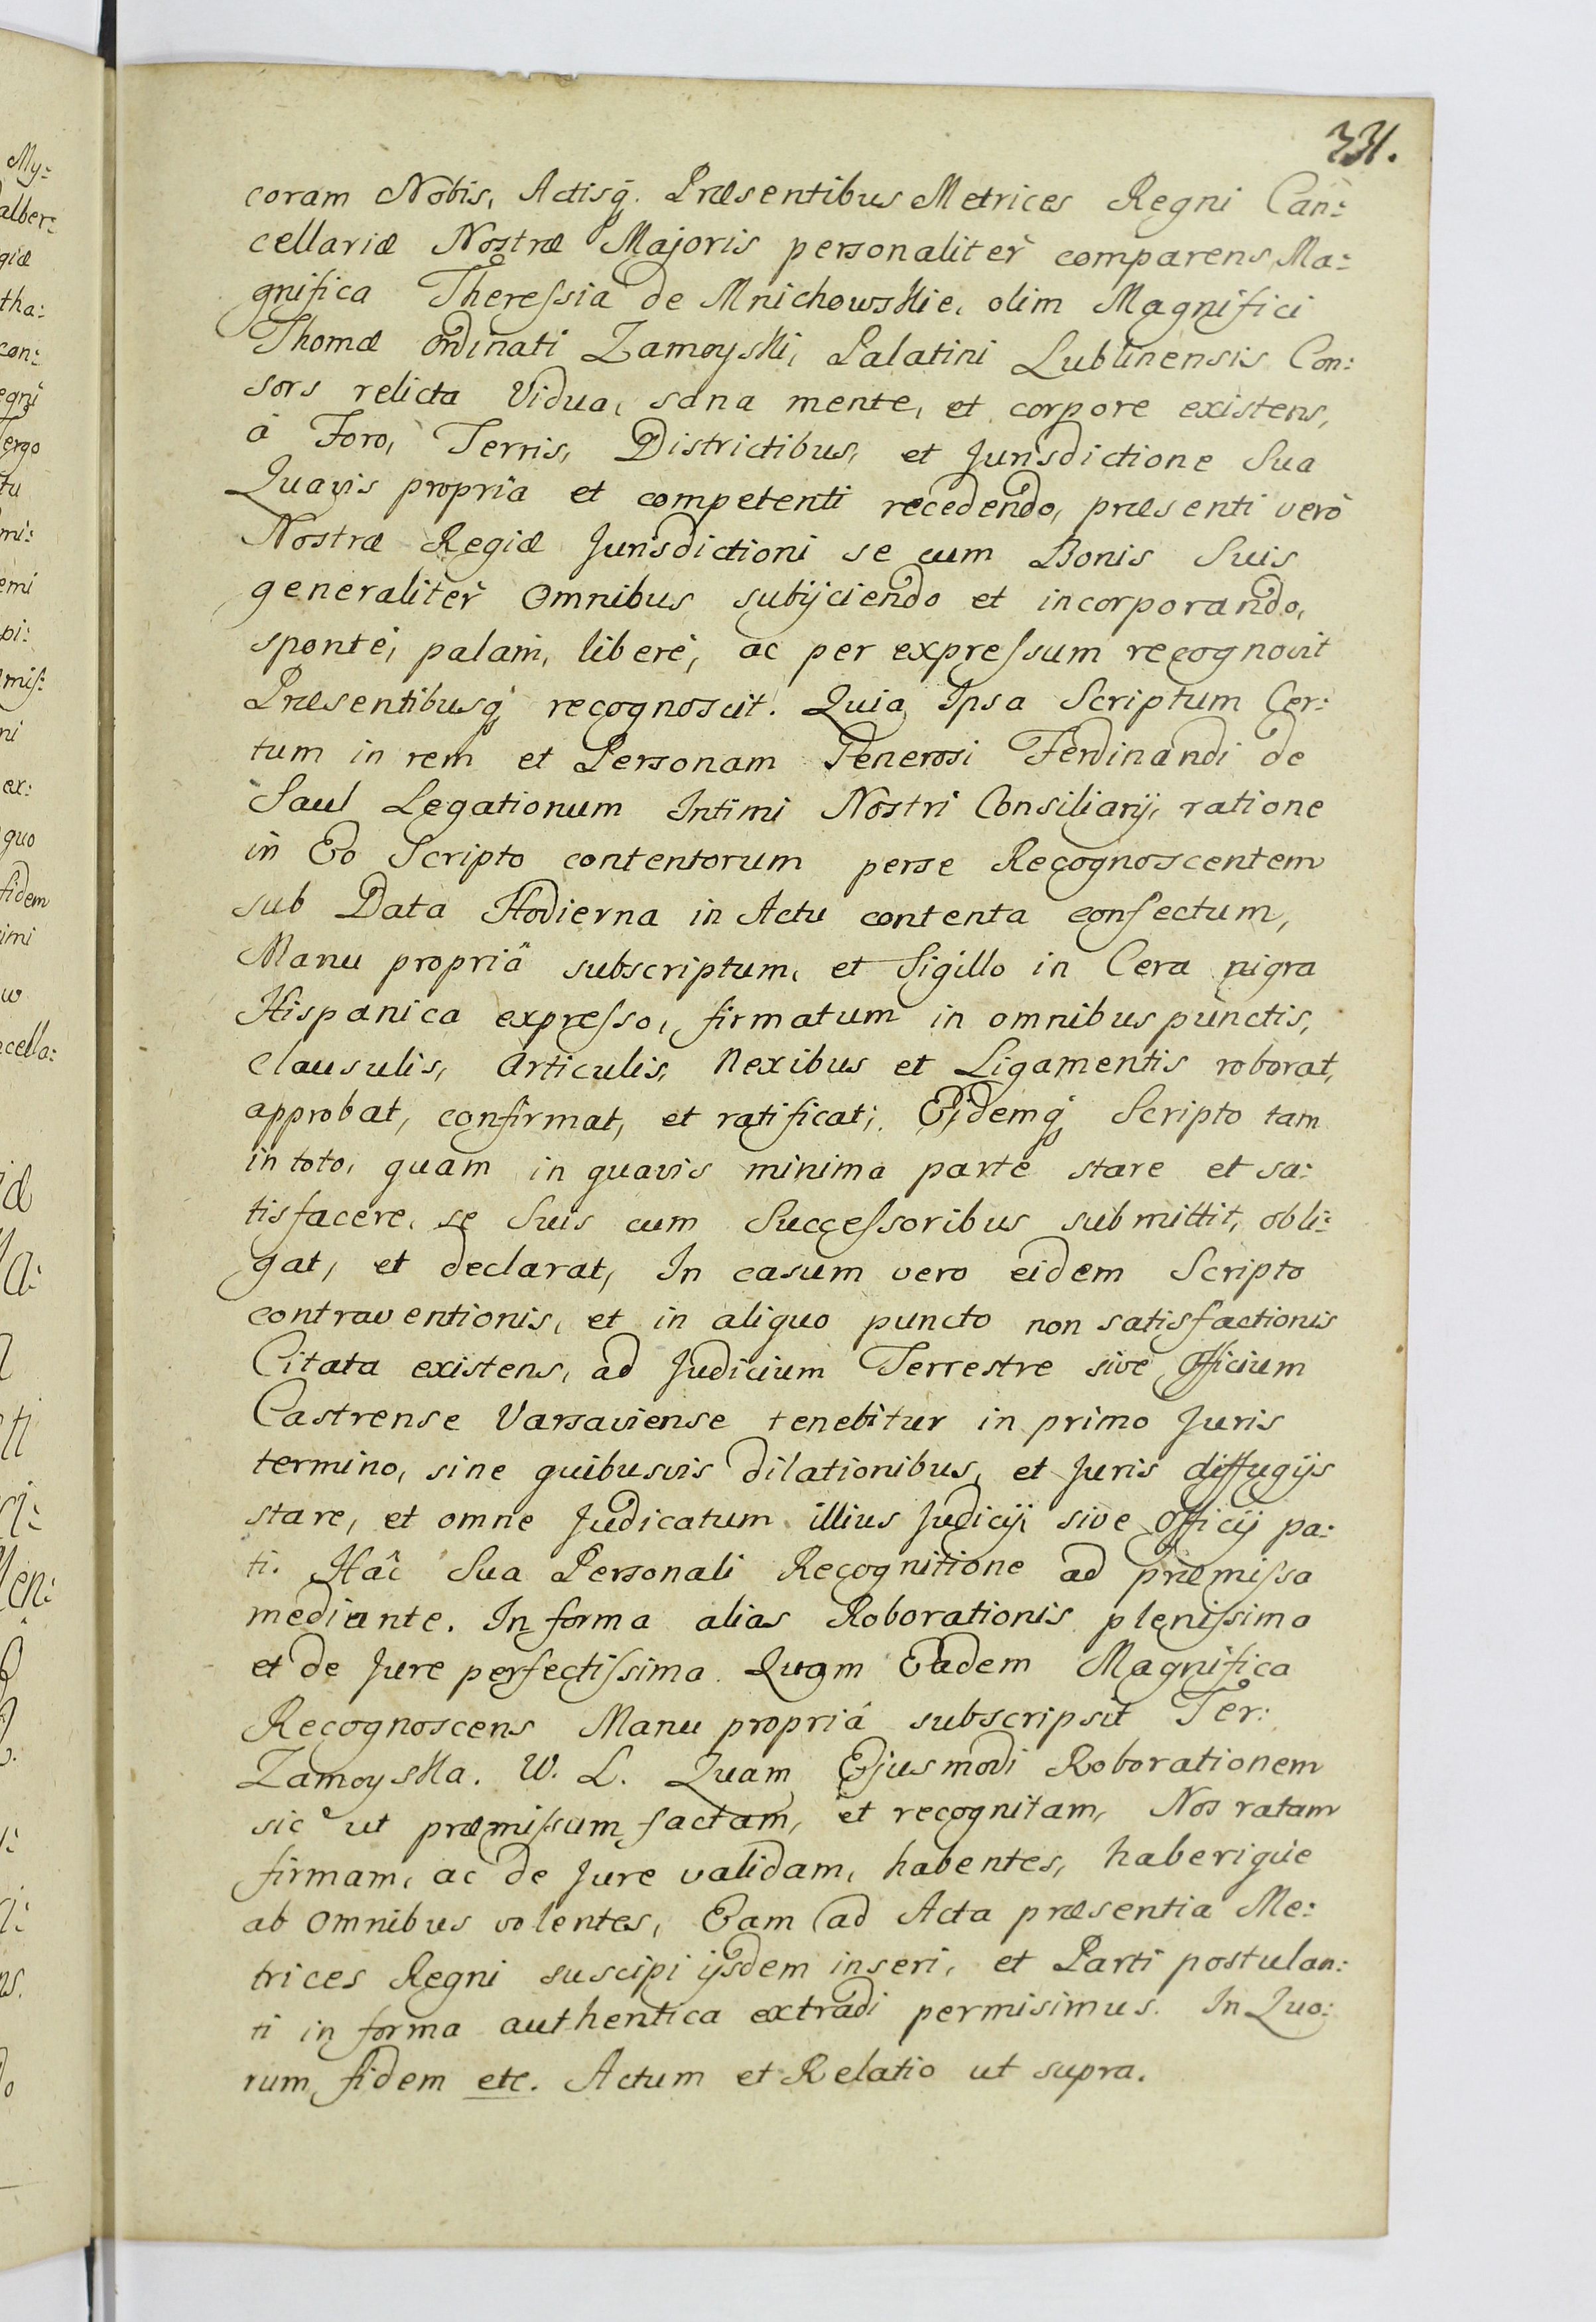 331.
coram Nobis, Actisq́. Præsentibus Metrices Regni Can:
cellariæ Nostræ Majoris personalitèr comparens Ma:
gnifica Theresſia de Mnichowskie, olim Magnifici
Thomæ Ordinati Zamoyski, Palatini Lublinensis Con:
sors relicta Vidua, sana mente, et corpore existens,
à Foro, Terris, Districtibus, et Jurisdictione Sua
Quavis propria et competenti recedendo, præsenti verò
Nostræ Regiæ Jurisdictioni se cum Bonis Suis
generalitèr Omnibus subijciendo et incorporando,
sponté, palam, liberé, ac per expreſsum recognovit
Præsentibusq́ recognoscit. Quia Ipsa Scriptum Cer:
tum in rem et Personam Generosi Ferdinandi de
Saul Legationum Intimi Nostri Consiliarij, ratione
in Eo Scripto contentorum perse Recognoscentem
sub Data Hodierna in Actu contenta confectum,
Manu propriâ subscriptum, et Sigillo in Cera nigra
Hispanica expreſso, firmatum in omnibus punctis,
Clausulis, Articulis, Nexibus et Ligamentis roborat,
approbat, confirmat, et ratificat; Eidemq́ Scripto tam
in toto, quam in quavis minima parte stare et sa:
tisfacere, se Suis cum Succeſsoribus submittit, obli:
gat, et declarat, In casum vero eidem Scripto
contraventionis, et in aliquo puncto non satisfactionis
Citata existens, ad Judicium Terrestre sive Officium
Castrense Varsaviense tenebitur in primo Juris
termino, sine quibusvis dilationibus, et Juris diffugijs
stare, et omne Judicatum illius Judicij, sive Officij pa:
ti. Hâc Sua Personali Recognitione ad præmiſsa
mediante. In forma alias Roborationis pleniſsima
et de Jure perfectiſsima. Quam Eadem Magnifica
Recognoscens Manu propriâ subscripsit Ter:
Zamoyska. W. L. Quam Ejusmodi Roborationem
sic ut præmiſsum factam, et recognitam, Nos ratam
firmam, ac de Jure validam, habentes, haberique
ab Omnibus volentes, Eam ad Acta præsentia Me:
trices Regni suscipi ijsdem inseri, et Parti postulan:
ti in forma authentica extradi permisimus. In Quo:
rum fidem etc. Actum et Relatio ut supra.